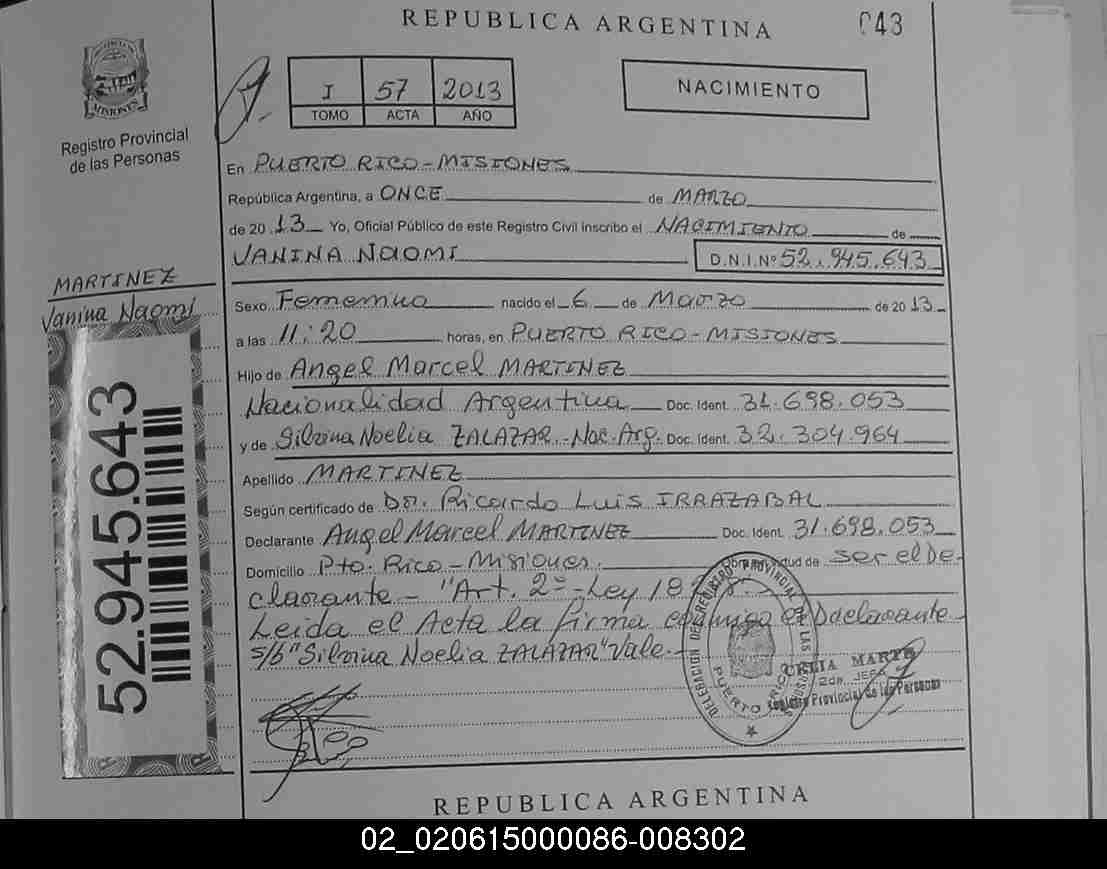 REPUBLICA ARGENTINA
043
MISIONES
Registro Provincial
de las Personas
I 57 2013
TOMO ACTA AÑO
NACIMIENTO
En PUERTO RICO-MISIONES
República Argentina, a ONCE de MARZO
de 20 13 Yo, Oficial Público de este Registro Civil inscribo el NACIMIENTO de
VANINA NAOMI D.N.I.Nº 52.945.643
MARTINEZ
Vanina Naomi
52.945.643
Sexo Femenino nacido el 6 de Marzo de 20 13
a las 11:20 horas, en PUERTO RICO-MISIONES
Hijo de Angel Marcel MARTINEZ
Nacionalidad Argentina Doc. Ident. 31.698.053
y de Silvina Noelia ZALAZAR.-Nac.Arg. Doc. Ident. 32.304.964
Apellido MARTINEZ
Según certificado de Dr. Ricardo Luis IRRAZABAL
Declarante Angel Marcel MARTINEZ Doc. Ident. 31.698.053
Domicilio Pto. Rico-Misiones. ser el De-
clarante- "Art. 2º-Ley 18
Leida el Acta la firma conmigo el Declarante
s/b "Silvina Noelia ZALAZAR" Vale.-
DELEGACION DEL REGISTRO PROVINCIAL DE LAS PERSONAS
PUERTO RICO
CELIA
Registro Provincial de las Personas
REPUBLICA ARGENTINA
02_020615000086-008302